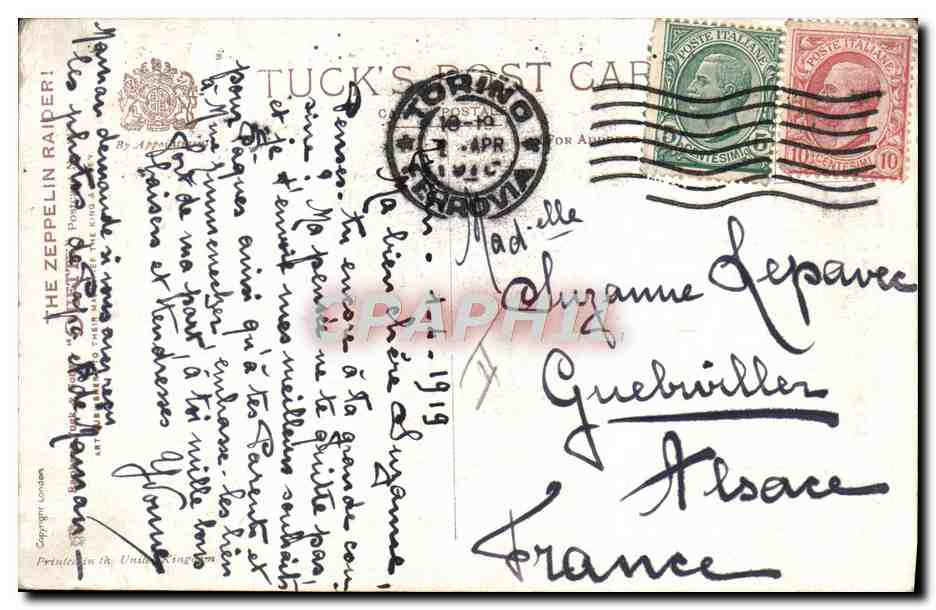 TUCK'S POST CARD
By Appointment
FOR ADDRESS
THE ZEPPELIN RAIDER!
Copyright London
Printed in the United Kingdom
TORINO
18-19
APR
FERROVIA
POSTE ITALIANE
CENTESIMI
POSTE ITALIANE
10 CENTESIMI 10
CPAPHIL
1919
Ma bien chère Suzanne!
Penses-tu encore à ta grande cou-
sine? Ma pensée ne te quitte pas
et je t'envoie mes meilleurs souhaits
pour Pâques ainsi qu'à tes Parents et
à Mme embrasse-les bien
fort de ma part à toi mille bons
baisers et tendresses Yvonne
Maman demande si vous avez reçu
les photos de Papa et de Maman
Mad-elle
Suzanne Lepavec
Guebwiller
Alsace
France